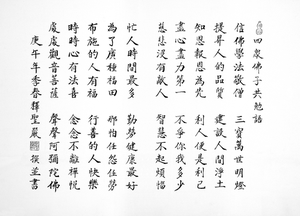 四眾佛子共勉語
信佛學法敬僧 三寶萬世明燈
提昇人的品質 建設人間淨土
知恩報恩為先 利人便是利己
盡心盡力第一 不爭你我多少
慈悲沒有敵人 智慧不起煩惱
忙人時間最多 勤勞健康最好
為了廣種福田 那怕任怨任勞
布施的人有福 行善的人快樂
時時心有法喜 念念不離禪悅
處處觀音菩薩 聲聲阿彌陀佛
庚午年季春釋聖嚴 撰並書